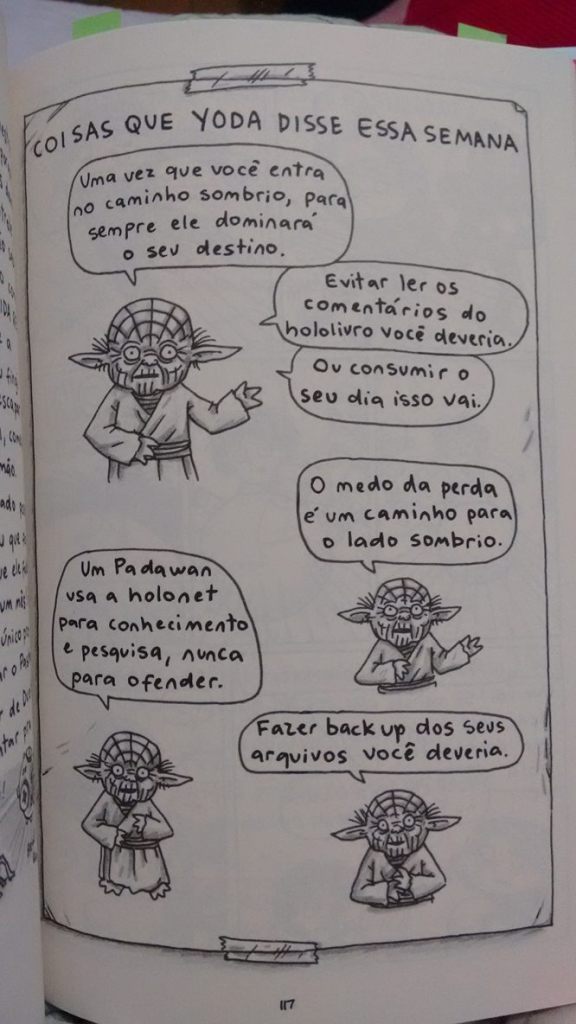 COISAS QUE YODA DISSE ESSA SEMANA
Uma vez que você entra
no caminho sombrio, para
sempre ele dominará
o seu destino.
Evitar ler os
comentários do
hololivro você deveria.
Ou consumir o
seu dia isso vai.
O medo da perda
é um caminho para
o lado sombrio.
Um Padawan
usa a holonet
para conhecimento
e pesquisa, nunca
para ofender.
Fazer backup dos seus
arquivos você deveria.
117